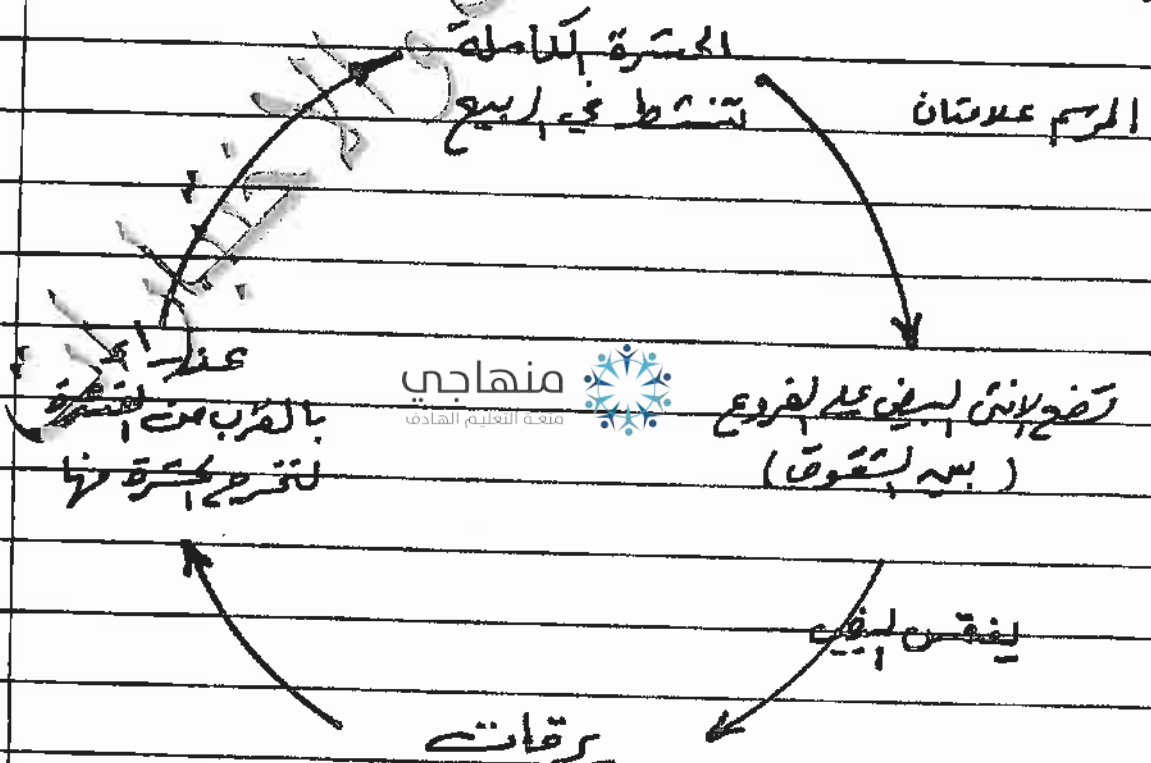 الحشرة الكاملة
تنشط في الربيع
الرسم علامتان
تضع الانثى البيض على الفروع
(بين الشقوق)
يفقس البيض
يرقات
عذراء
بالقرب من القشرة
لتخرج الحشرة منها
منهاجي
متعة التعليم الهادف